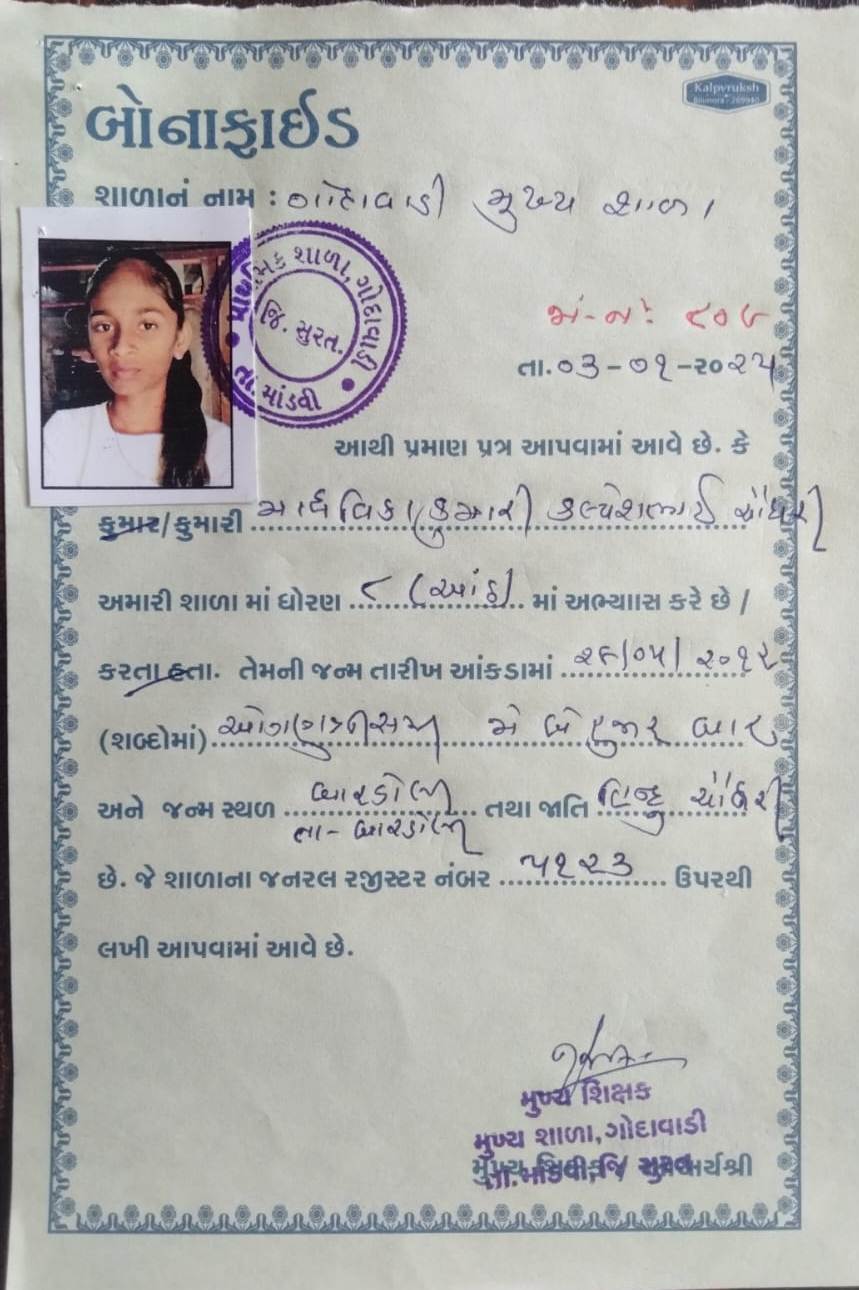 Kalpvruksh
Bilimora - 289940
બોનાફાઈડ
શાળાનું નામ : ગોદાવાડી મુખ્ય શાળા
પ્રાથમિક શાળા, ગોદાવાડી
જિ. સુરત.
તા. માંડવી
જા-નં: ૮૦૬
તા.૦૩-૦૧-૨૦૨૫
આથી પ્રમાણ પત્ર આપવામાં આવે છે. કે
કુમાર/કુમારી માર્ધવિકા(કુમારી) કલ્પેશભાઈ ચૌધરી
અમારી શાળા માં ધોરણ ૮ (આઠ) માં અભ્યાસ કરે છે /
કરતા હતા. તેમની જન્મ તારીખ આંકડામાં ૨૯/૦૫/૨૦૧૨
(શબ્દોમાં) ઓગણત્રીસમી મે બે હજાર બાર
અને જન્મ સ્થળ બારડોલી તથા જાતિ હિન્દુ ચૌધરી
તા- બારડોલી
છે. જે શાળાના જનરલ રજીસ્ટર નંબર ૫૧૨૩ ઉપરથી
લખી આપવામાં આવે છે.
મુખ્ય શિક્ષક
મુખ્ય શાળા, ગોદાવાડી
તા.માંડવી, જિ સુરત